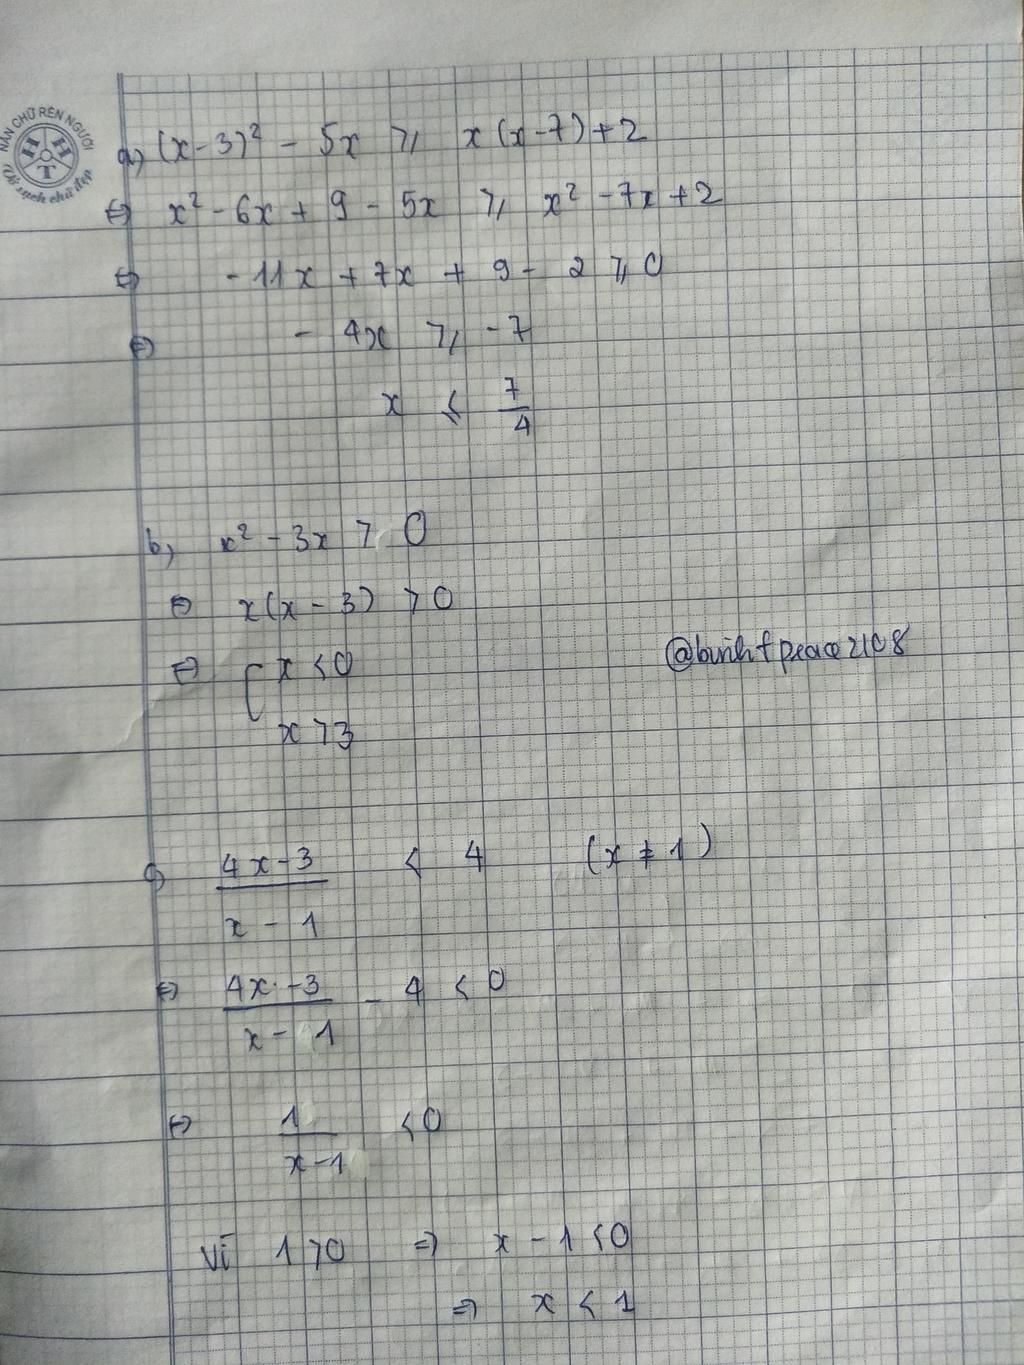 NẮN CHỮ RÈN NGƯỜI
H H T
Vở sạch chữ đẹp
a, (x-3)² - 5x ⩾ x(x-7)+2
⇔ x² - 6x + 9 - 5x ⩾ x² - 7x + 2
⇔ - 11x + 7x + 9 - 2 ⩾ 0
⇔ - 4x ⩾ - 7
x ⩽ 7/4
b, x² - 3x > 0
⇔ x(x - 3) > 0
⇔ [ x < 0
x > 3
@binhfpeace2108
c, (4x - 3)/(x - 1) < 4 (x ≠ 1)
⇔ (4x - 3)/(x - 1) - 4 < 0
⇔ 1/(x - 1) < 0
Vì 1 > 0 ⇒ x - 1 < 0
⇒ x < 1